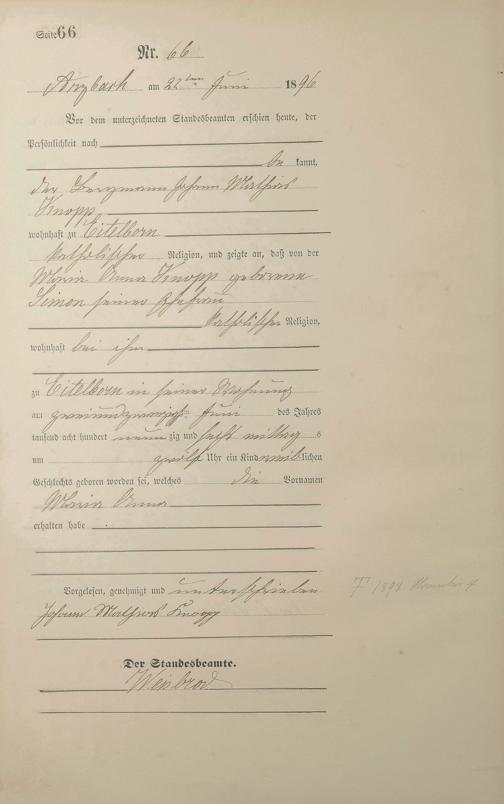 Seite 66
Nr. 66
Arzbach am 22ten Juni 1896
Vor dem unterzeichneten Standesbeamten erschien heute, der
Persönlichkeit nach
be kannt,
der Bergmann Johann Mathias
Knopp
wohnhaft zu Eitelborn
katholischer Religion, und zeigte an, daß von der
Maria Anna Knopp geborene
Simon seiner Ehefrau
katholischer Religion,
wohnhaft bei ihm
zu Eitelborn in seiner Wohnung
am zweiundzwanzigsten Juni des Jahres
tausend acht hundert neunzig und sechs mittags
um zwölf Uhr ein Kind weiblichen
Geschlechts geboren worden sei, welches die Vornamen
Maria Anna
erhalten habe
Vorgelesen, genehmigt und unterschrieben
Johann Mathias Knopp
Der Standesbeamte.
Weisbrod
† 1898 November 4